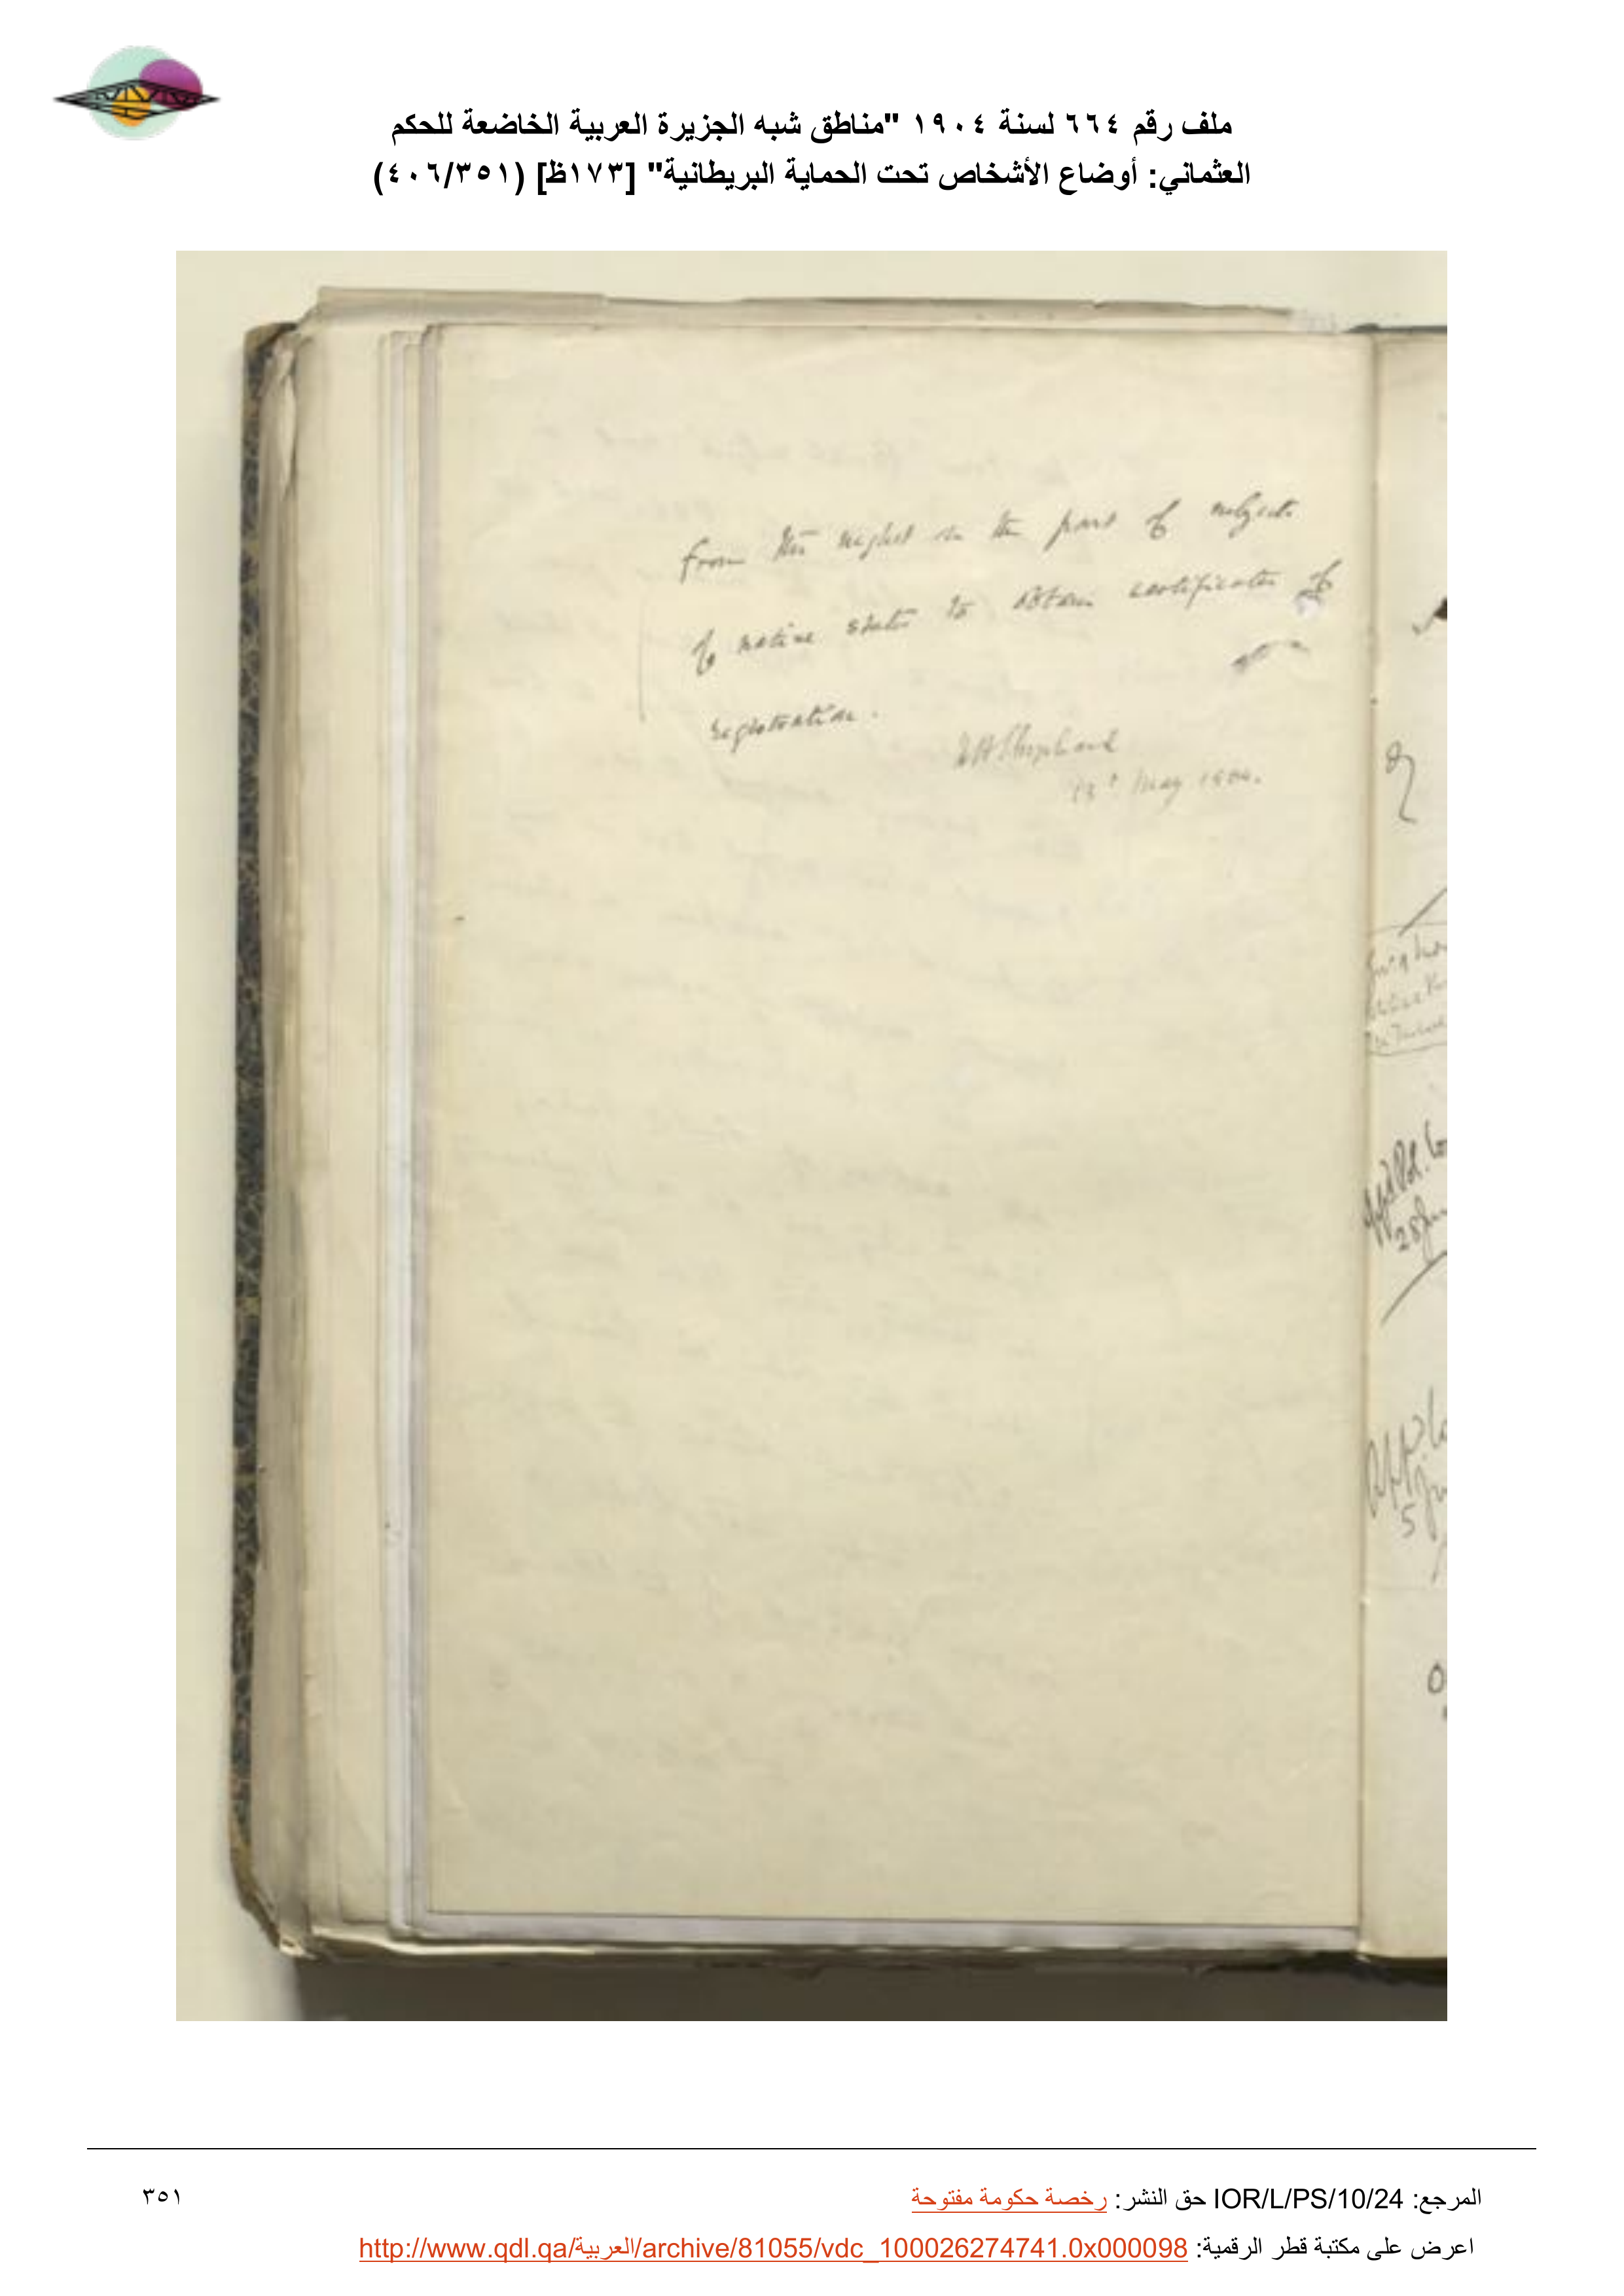 ملف رقم ٦٦٤ لسنة ١٩٠٤ "مناطق شبه الجزيرة العربية الخاضعة للحكم
العثماني: أوضاع الأشخاص تحت الحماية البريطانية" [١٧٣ظ] (٤٠٦/٣٥١)
from the neglect on the part of subjects
of native states to obtain certificates of
registration.
May 1904.
المرجع: IOR/L/PS/10/24 حق النشر: رخصة حكومة مفتوحة
٣٥١
اعرض على مكتبة قطر الرقمية: http://www.qdl.qa/العربية/archive/81055/vdc_100026274741.0x000098